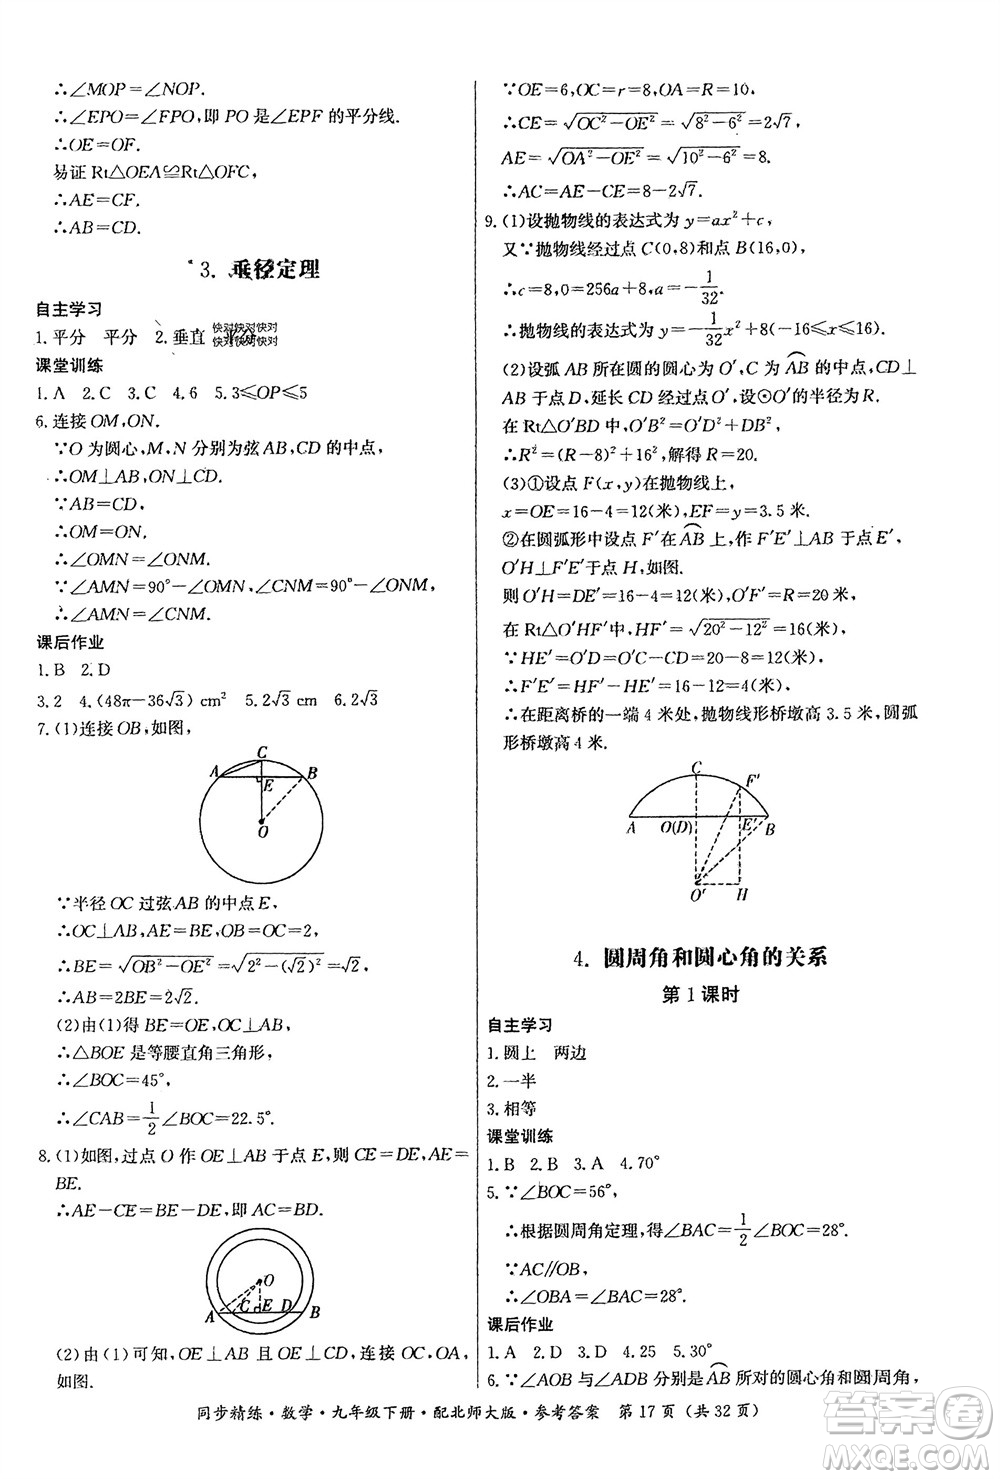 ∴∠MOP=∠NOP.
∴∠EPO=∠FPO,即 PO 是∠EPF 的平分线.
∴OE=OF.
易证 Rt△OEA≌Rt△OFC,
∴AE=CF.
∴AB=CD.
3. 垂径定理
自主学习
1. 平分 平分 2. 垂直 平分
课堂训练
1. A 2. C 3. C 4. 6 5. 3≤OP≤5
6. 连接 OM,ON.
∵O 为圆心,M,N 分别为弦 AB,CD 的中点,
∴OM⊥AB,ON⊥CD.
∵AB=CD,
∴OM=ON.
∴∠OMN=∠ONM.
∵∠AMN=90°-∠OMN,∠CNM=90°-∠ONM,
∴∠AMN=∠CNM.
课后作业
1. B 2. D
3. 2 4. (48π-36√3) cm² 5. 2√3 cm 6. 2√3
7. (1)连接 OB,如图,
C
A B
E
O
∵半径 OC 过弦 AB 的中点 E,
∴OC⊥AB,AE=BE,OB=OC=2,
∴BE=√(OB²-OE²)=√(2²-(√2)²)=√2.
∴AB=2BE=2√2.
(2)由(1)得 BE=OE,OC⊥AB,
∴△BOE 是等腰直角三角形,
∴∠BOC=45°,
∴∠CAB=1/2∠BOC=22.5°.
8. (1)如图,过点 O 作 OE⊥AB 于点 E,则 CE=DE,AE=
BE.
∴AE-CE=BE-DE,即 AC=BD.
O
A C E D B
(2)由(1)可知,OE⊥AB 且 OE⊥CD,连接 OC,OA,
如图.
∵OE=6,OC=r=8,OA=R=10.
∴CE=√(OC²-OE²)=√(8²-6²)=2√7,
AE=√(OA²-OE²)=√(10²-6²)=8.
∴AC=AE-CE=8-2√7.
9. (1)设抛物线的表达式为 y=ax²+c,
又∵抛物线经过点 C(0,8)和点 B(16,0),
∴c=8,0=256a+8,a=-1/32.
∴抛物线的表达式为 y=-1/32x²+8(-16≤x≤16).
(2)设弧 AB 所在的圆的圆心为 O′,C 为 AB 的中点,CD⊥
AB 于点 D,延长 CD 经过点 O′,设⊙O′的半径为 R.
在 Rt△O′BD 中,O′B²=O′D²+DB²,
∴R²=(R-8)²+16²,解得 R=20.
(3)①设点 F(x,y)在抛物线上,
x=OE=16-4=12(米),EF=y=3.5 米.
②在圆弧形中设点 F′在 AB 上,作 F′E′⊥AB 于点 E′,
O′H⊥F′E′于点 H,如图.
则 O′H=DE′=16-4=12(米),O′F′=R=20(米),
在 Rt△O′HF′中,HF′=√(20²-12²)=16(米),
∵HE′=O′D=OC-CD=20-8=12(米),
∴E′F′=HF′-HE′=16-12=4(米).
∴在距离桥的一端 4 米处,抛物线形桥墩高 3.5 米,圆弧
形桥墩高 4 米.
C F′
A O(D) E′ B
O′ H
4. 圆周角和圆心角的关系
第 1 课时
自主学习
1. 圆上 两边
2. 一半
3. 相等
课堂训练
1. B 2. B 3. A 4. 70°
5. ∵∠BOC=56°,
∴根据圆周角定理,得∠BAC=1/2∠BOC=28°.
∵AC∥OB,
∴∠OBA=∠BAC=28°.
课后作业
1. A 2. D 3. D 4. 25 5. 30°
6. ∵∠AOB 与∠ADB 分别是 AB 所对的圆心角和圆周角,
同步精练·数学·九年级下册·配北师大版·参考答案 第 17 页 (共 32 页)
答案圈
MXQE.COM